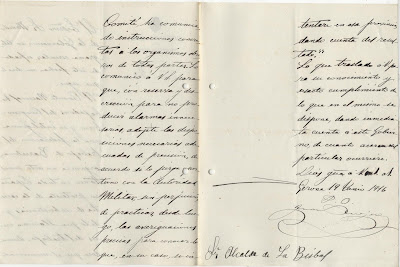 Comité ha comunica
de instrucciones concre
tas á los organismos de
os de todas partes Lo
comunico á Vd para
que, con reserva y dis
creccion para no pro
ducir alarmas innece
sarias adopte las dispo
siciones necesarias ade
cuadas de prevision, de
acuerdo de la fuerza
con la Autoridad
Militar, sin perjuicio
de practicar desde lue
go, las averiguaciones
precisas para
que, en su caso, se in
tentare en esa provincia
dando cuenta del resul
tado."
Lo que traslado á V. pa
ra su conocimiento y
exacto cumplimiento de
lo que en el mismo se
dispone, dando inmedia
ta cuenta á este Gobier
no de cuanto acerca del
particular ocurriere.
Dios gue á V. m. a.
Gerona 19 Junio 1916
Sr Alcalde de La Bisbal